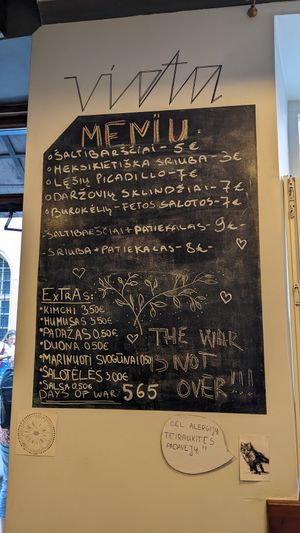 vieta
MENIU.
ŠALTIBARŠČIAI - 5€
MEKSIKIETIŠKA SRIUBA - 3€
LĘŠIŲ PICADILLO - 7€
DARŽOVIŲ SKLINDŽIAI - 7€
BUROKĖLIŲ-FETOS SALOTOS - 7€
ŠALTIBARŠČIAI + PATIEKALAS - 9€
- SRIUBA + PATIEKALAS - 8€
EXTRAS:
KIMCHI 3,50€
HUMUSAS 3,50€
PADAŽAS 0,50€
DUONA 0,50€
MARINUOTI SVOGŪNAI 0,50
SALOTĖLĖS 3,00€
SALSA 0,50€
DAYS OF WAR: 565
THE WAR
IS NOT
OVER!!!
DĖL ALERGIJŲ
TEIRAUKITĖS
PADAVĖJŲ!!